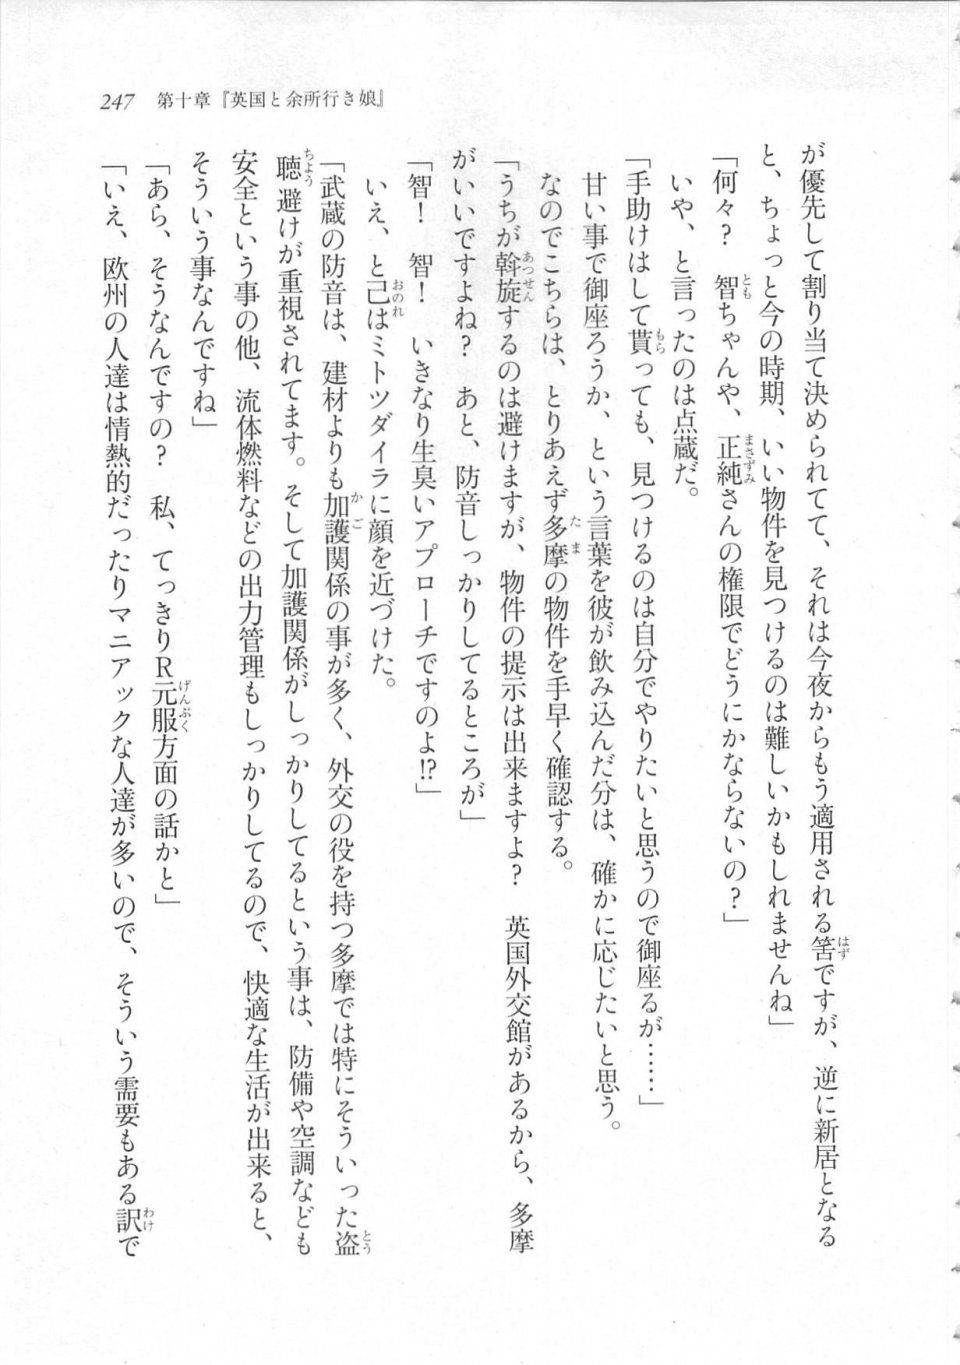 247　第十章『英国と余所行き娘』
が優先して割り当て決められてて、それは今夜からもう適用される筈ですが、逆に新居となる
と、ちょっと今の時期、いい物件を見つけるのは難しいかもしれませんね」
「何々？　智ちゃんや、正純さんの権限でどうにかならないの？」
いや、と言ったのは点蔵だ。
「手助けはして貰っても、見つけるのは自分でやりたいと思うので御座るが……」
甘い事で御座ろうか、という言葉を彼が飲み込んだ分は、確かに応じたいと思う。
なのでこちらは、とりあえず多摩の物件を手早く確認する。
「うちが斡旋するのは避けますが、物件の提示は出来ますよ？　英国外交館があるから、多摩
がいいですよね？　あと、防音しっかりしてるところが」
「智！　智！　いきなり生臭いアプローチですのよ!?」
いえ、と己はミトツダイラに顔を近づけた。
「武蔵の防音は、建材よりも加護関係の事が多く、外交の役を持つ多摩では特にそういった盗
聴避けが重視されてます。そして加護関係がしっかりしてるという事は、防備や空調なども
安全という事の他、流体燃料などの出力管理もしっかりしてるので、快適な生活が出来ると、
そういう事なんですね」
「あら、そうなんですの？　私、てっきりＲ元服方面の話かと」
「いえ、欧州の人達は情熱的だったりマニアックな人達が多いので、そういう需要もある訳で